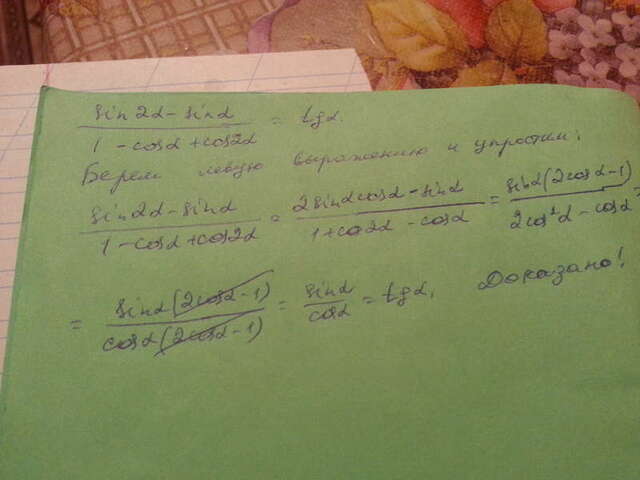 sin2α-sinα / 1-cosα+cos2α = tgα.
Берем левую выражению и упростим:
sin2α-sinα / 1-cosα+cos2α = 2sinαcosα-sinα / 1+cos2α-cosα = sinα(2cosα-1) / 2cos²α-cosα =
= sinα(2cosα-1) / cosα(2cosα-1) = sinα / cosα = tgα. Доказано!